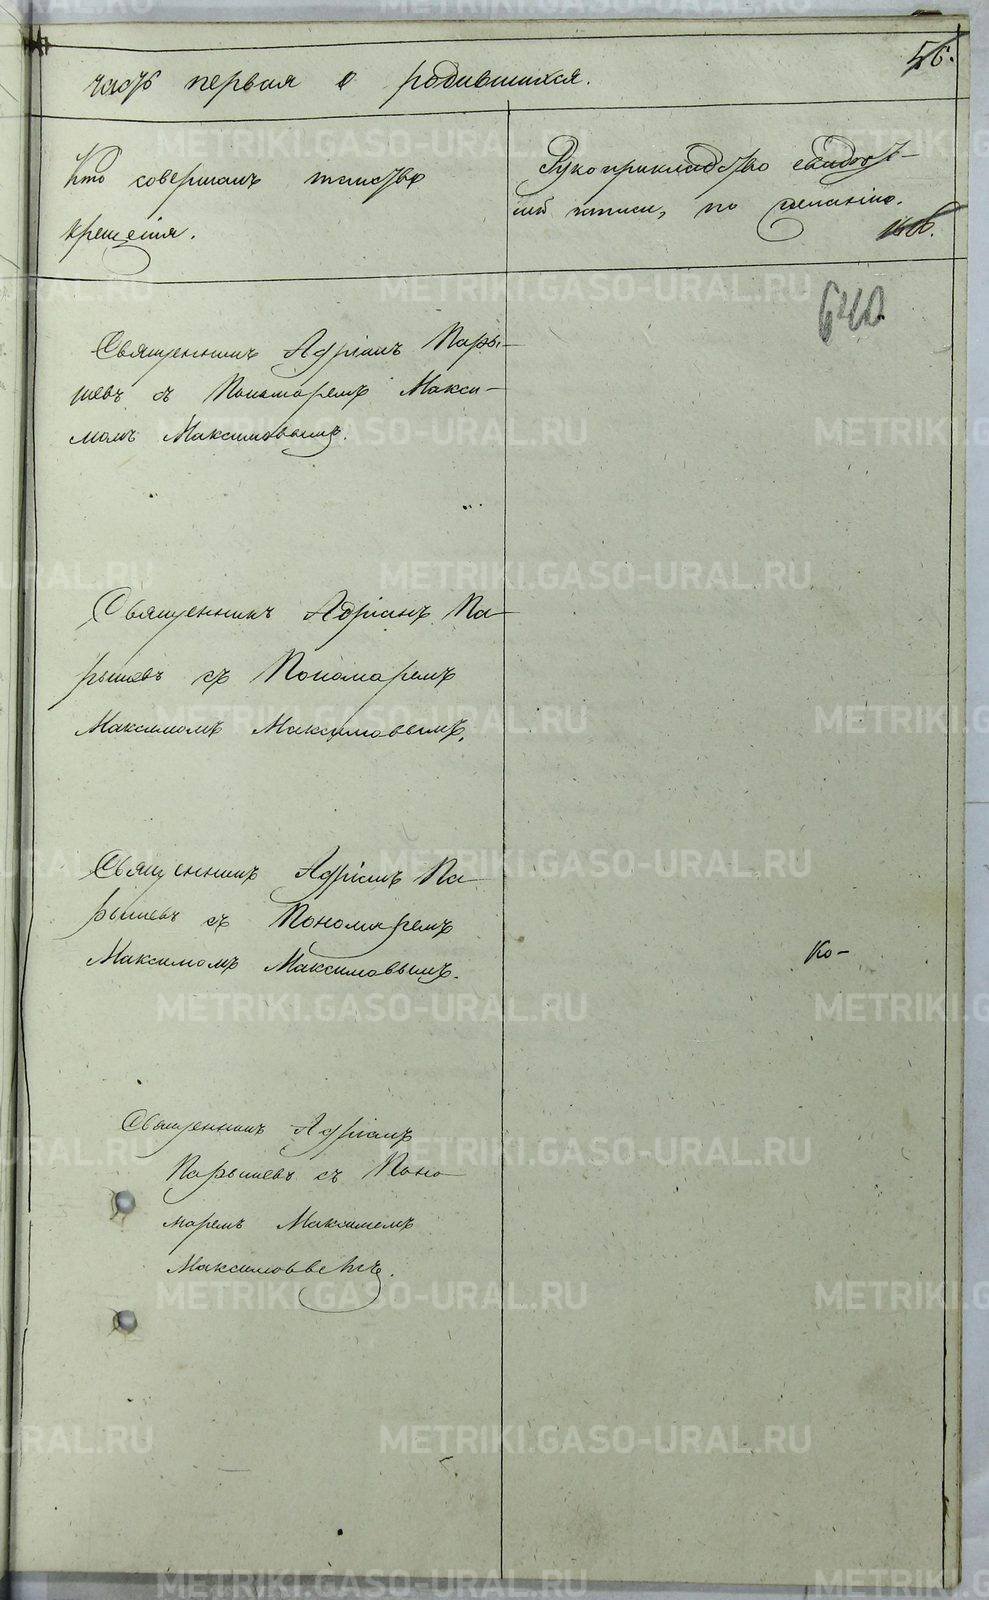 56.
часть первая о родившихся.
Кто совершалъ таинство
крещенія.
Рукоприкладство свидѣт-
лей записи, по желанію.
640
Священникъ Адріанъ Пары-
шевъ съ Пономаремъ Макси-
момъ Максимовымъ.
Священникъ Адріанъ Па-
рышевъ съ Пономаремъ
Максимомъ Максимовымъ.
Священникъ Адріанъ Па-
рышевъ съ Пономаремъ
Максимомъ Максимовымъ.
Ко-
Священникъ Адріанъ
Парышевъ съ Поно-
маремъ Максимомъ
Максимоввымъ.
METRIKI.GASO-URAL.RU